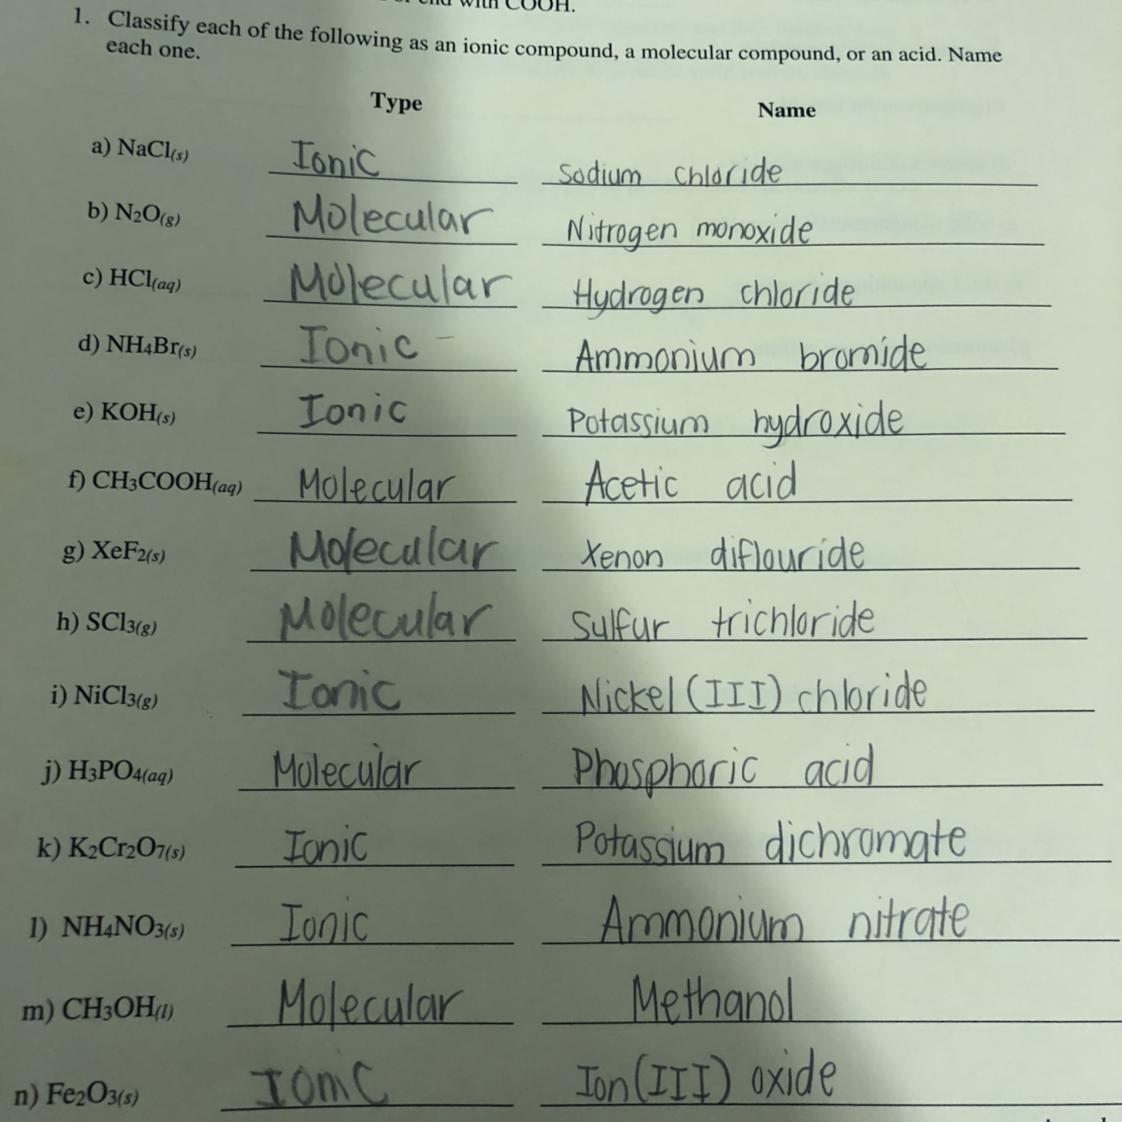 end with COOH.
1. Classify each of the following as an ionic compound, a molecular compound, or an acid. Name
each one.
Type Name
a) NaCl(s) Ionic Sodium chloride
b) N2O(g) Molecular Nitrogen monoxide
c) HCl(aq) Molecular Hydrogen chloride
d) NH4Br(s) Ionic Ammonium bromide
e) KOH(s) Ionic Potassium hydroxide
f) CH3COOH(aq) Molecular Acetic acid
g) XeF2(s) Molecular Xenon diflouride
h) SCl3(g) Molecular Sulfur trichloride
i) NiCl3(g) Ionic Nickel (III) chloride
j) H3PO4(aq) Molecular Phosphoric acid
k) K2Cr2O7(s) Ionic Potassium dichromate
l) NH4NO3(s) Ionic Ammonium nitrate
m) CH3OH(l) Molecular Methanol
n) Fe2O3(s) Ionic Ion (III) oxide